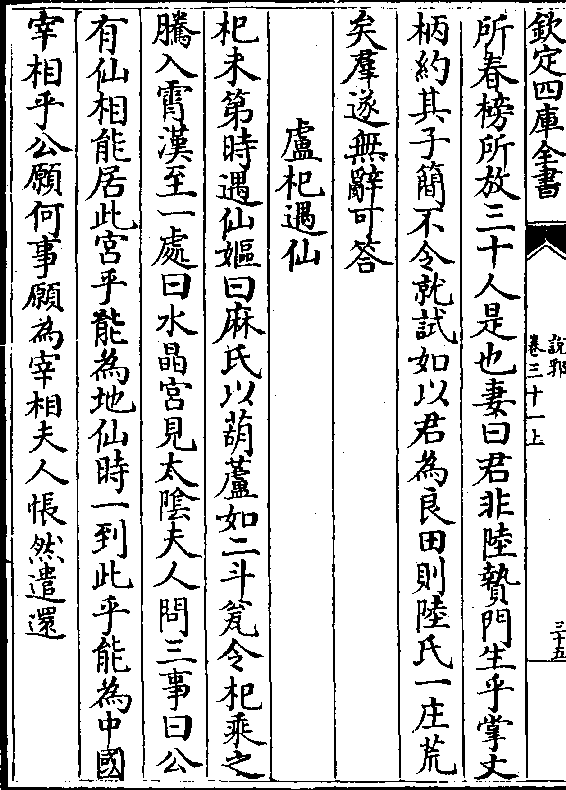 欽定四庫全書
說郛
卷三十一上
三十五
所春榜所放三十人是也妻曰君非陸贄門生乎掌文
柄約其子簡不令就試如以君為良田則陸氏一庄荒
矣羣遂無辭可答
盧杞遇仙
杞未第時遇仙嫗曰麻氏以葫蘆如二斗瓮令杞乘之
騰入霄漢至一處曰水晶宮見太陰夫人問三事曰公
有仙相能居此宮乎能為地仙時一到此乎能為中國
宰相乎公願何事願為宰相夫人悵然遣還